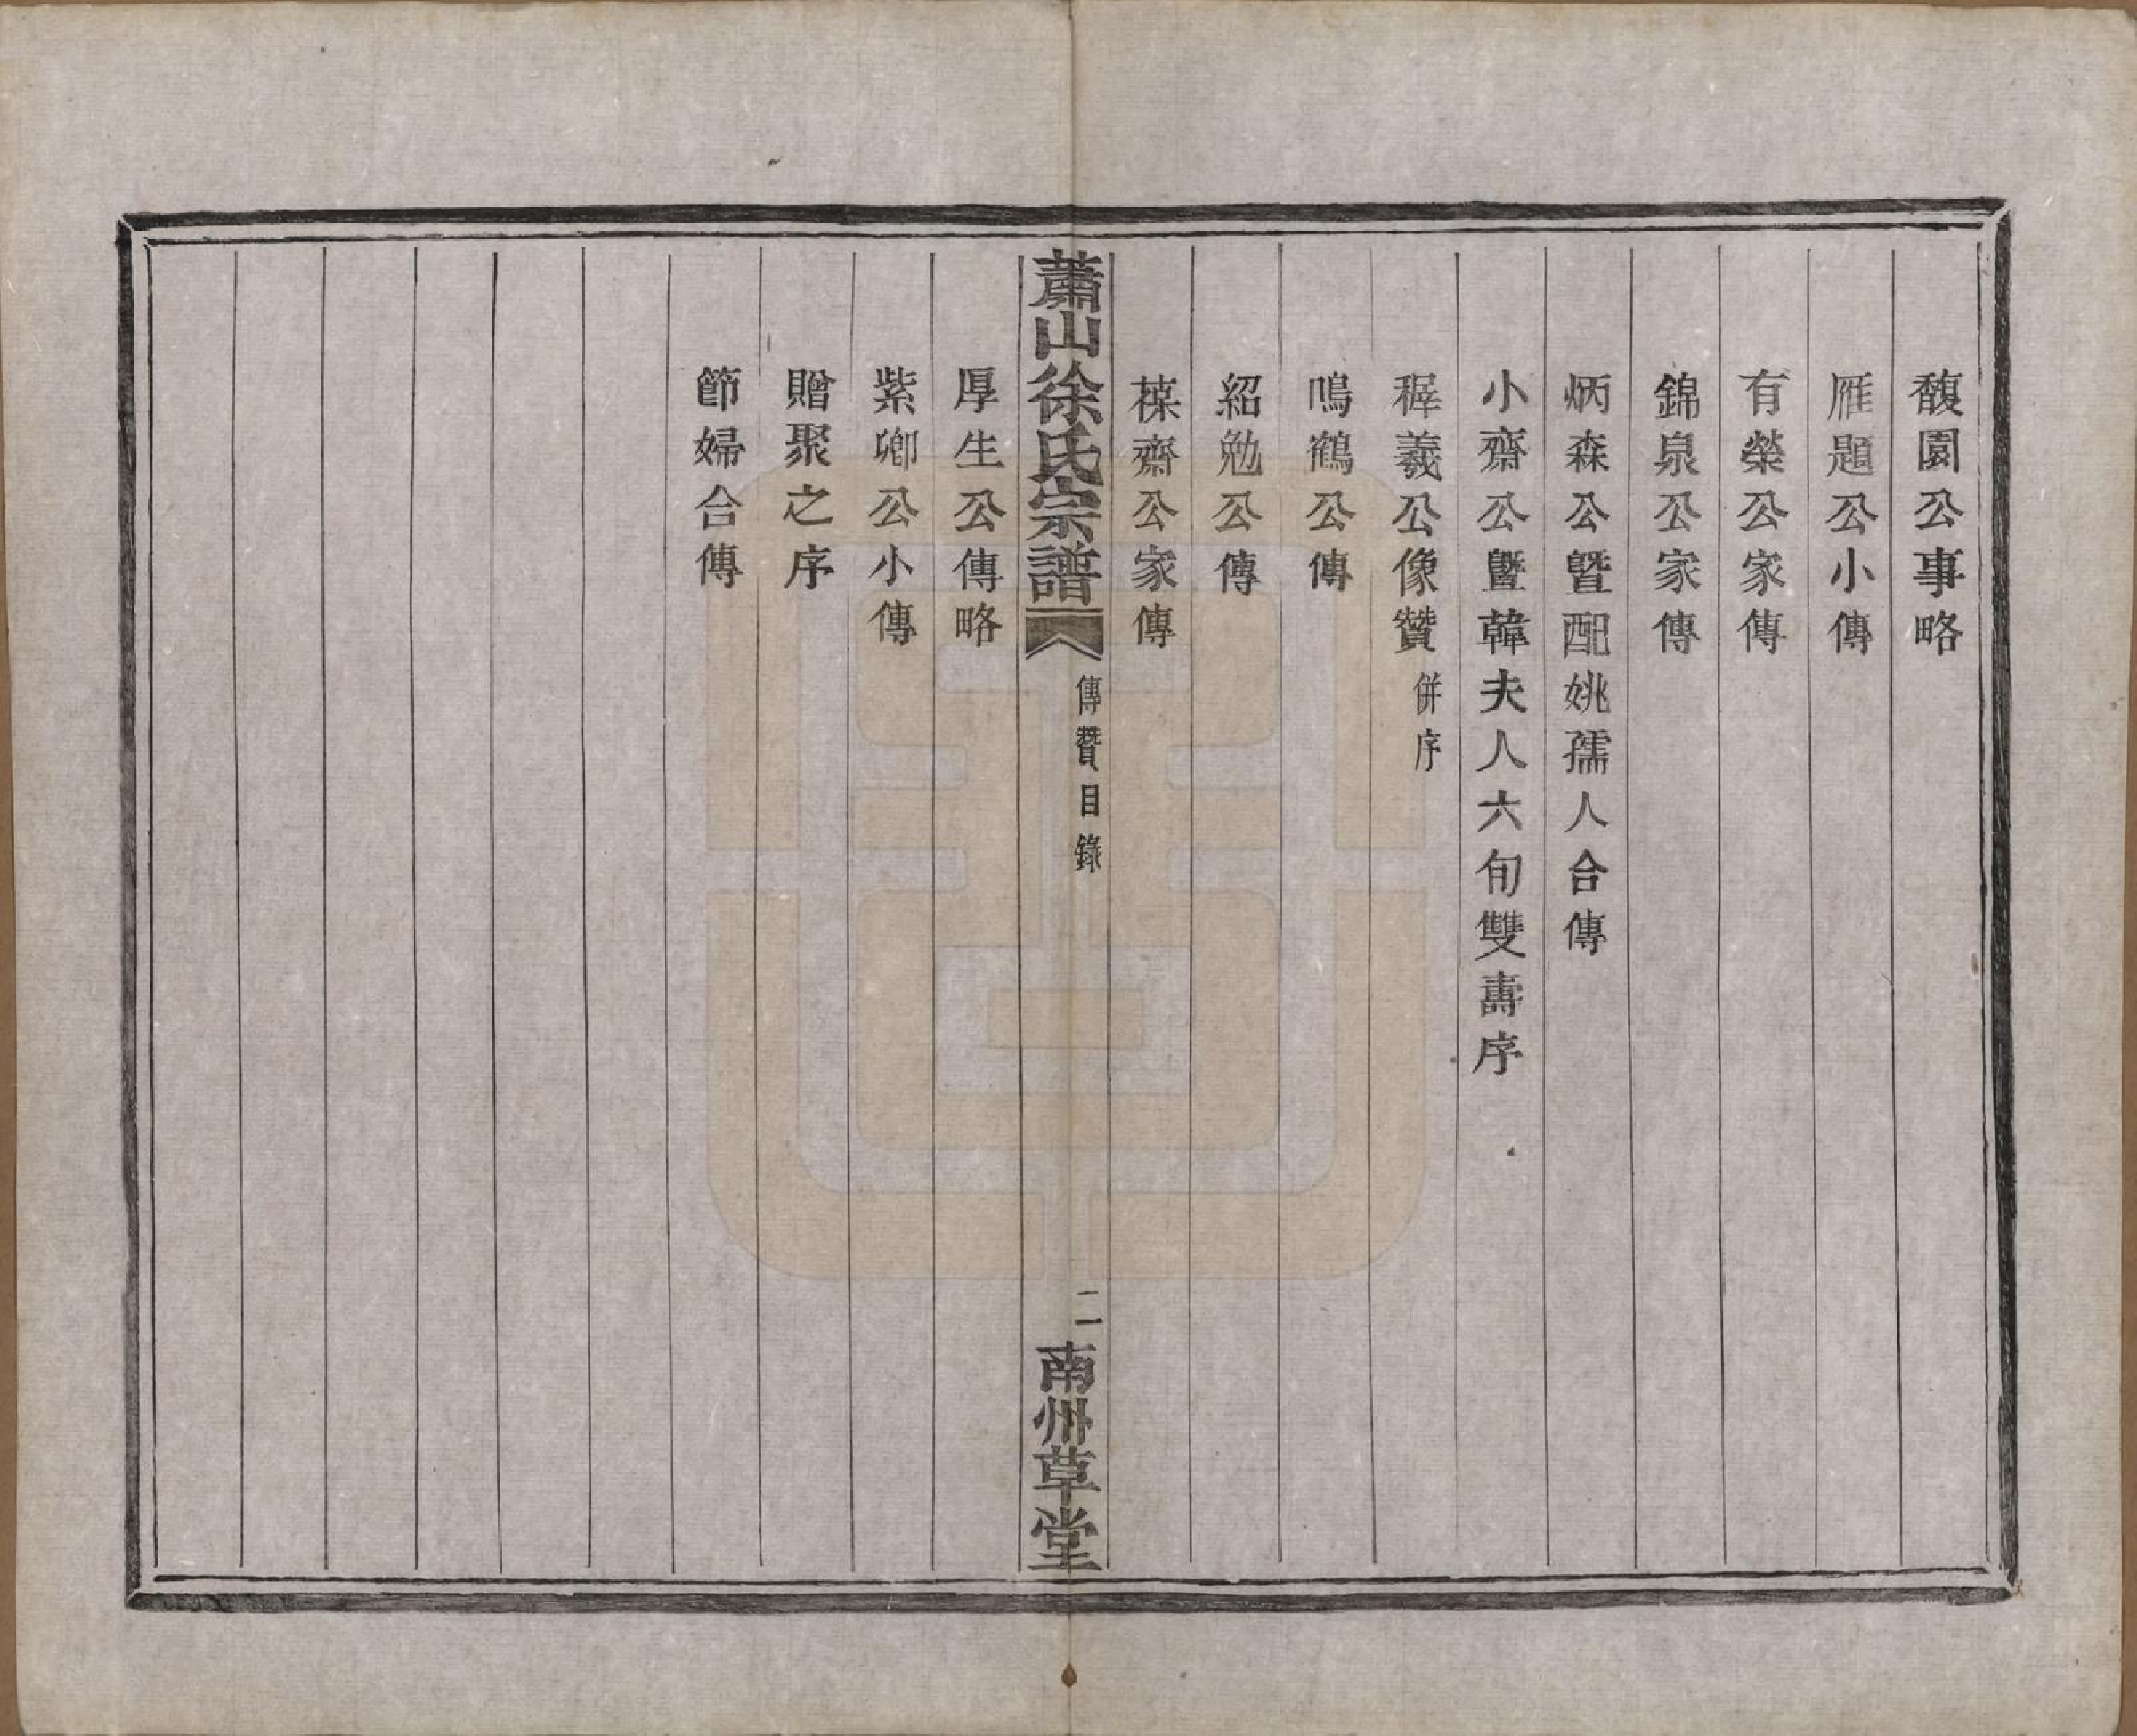 馥園公事略
雁題公小傳
有榮公家傳
錦泉公家傳
炳森公暨配姚孺人合傳
小齋公暨韓夫人六旬雙壽序
穉羲公像贊併序
鳴鶴公傳
紹勉公傳
楳齋公家傳
蕭山徐氏宗譜 傳贊目錄 二 南州草堂
厚生公傳略
紫卿公小傳
贈聚之序
節婦合傳